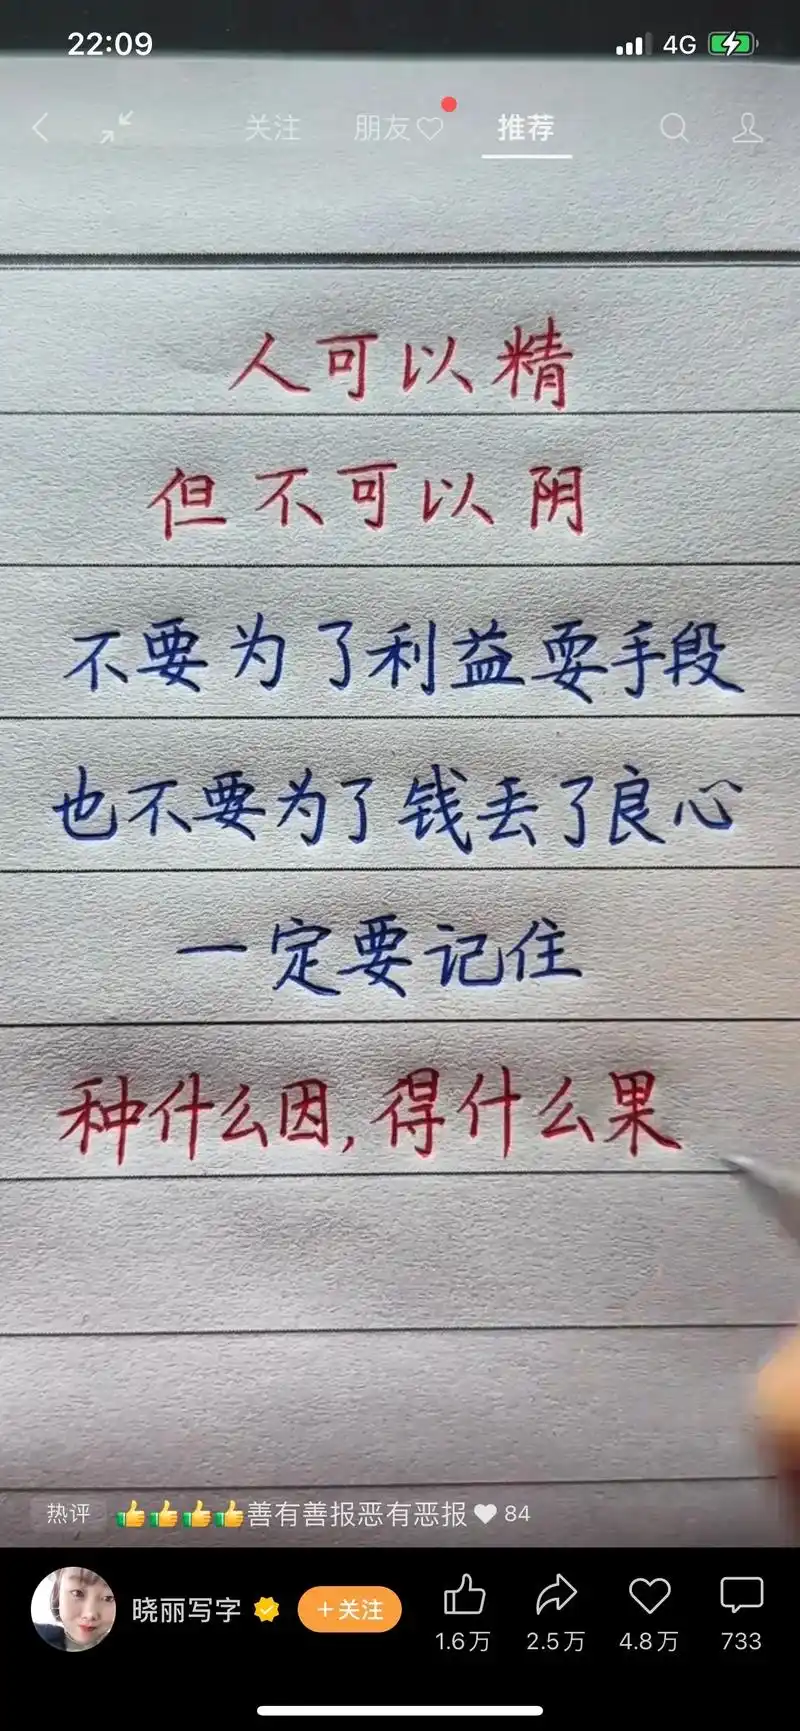 22:09 4G
关注 朋友♡ 推荐
人可以精
但不可以阴
不要为了利益耍手段
也不要为了钱丢了良心
一定要记住
种什么因,得什么果
热评 👍👍👍👍善有善报恶有恶报 84
晓丽写字 +关注
1.6万 2.5万 4.8万 733